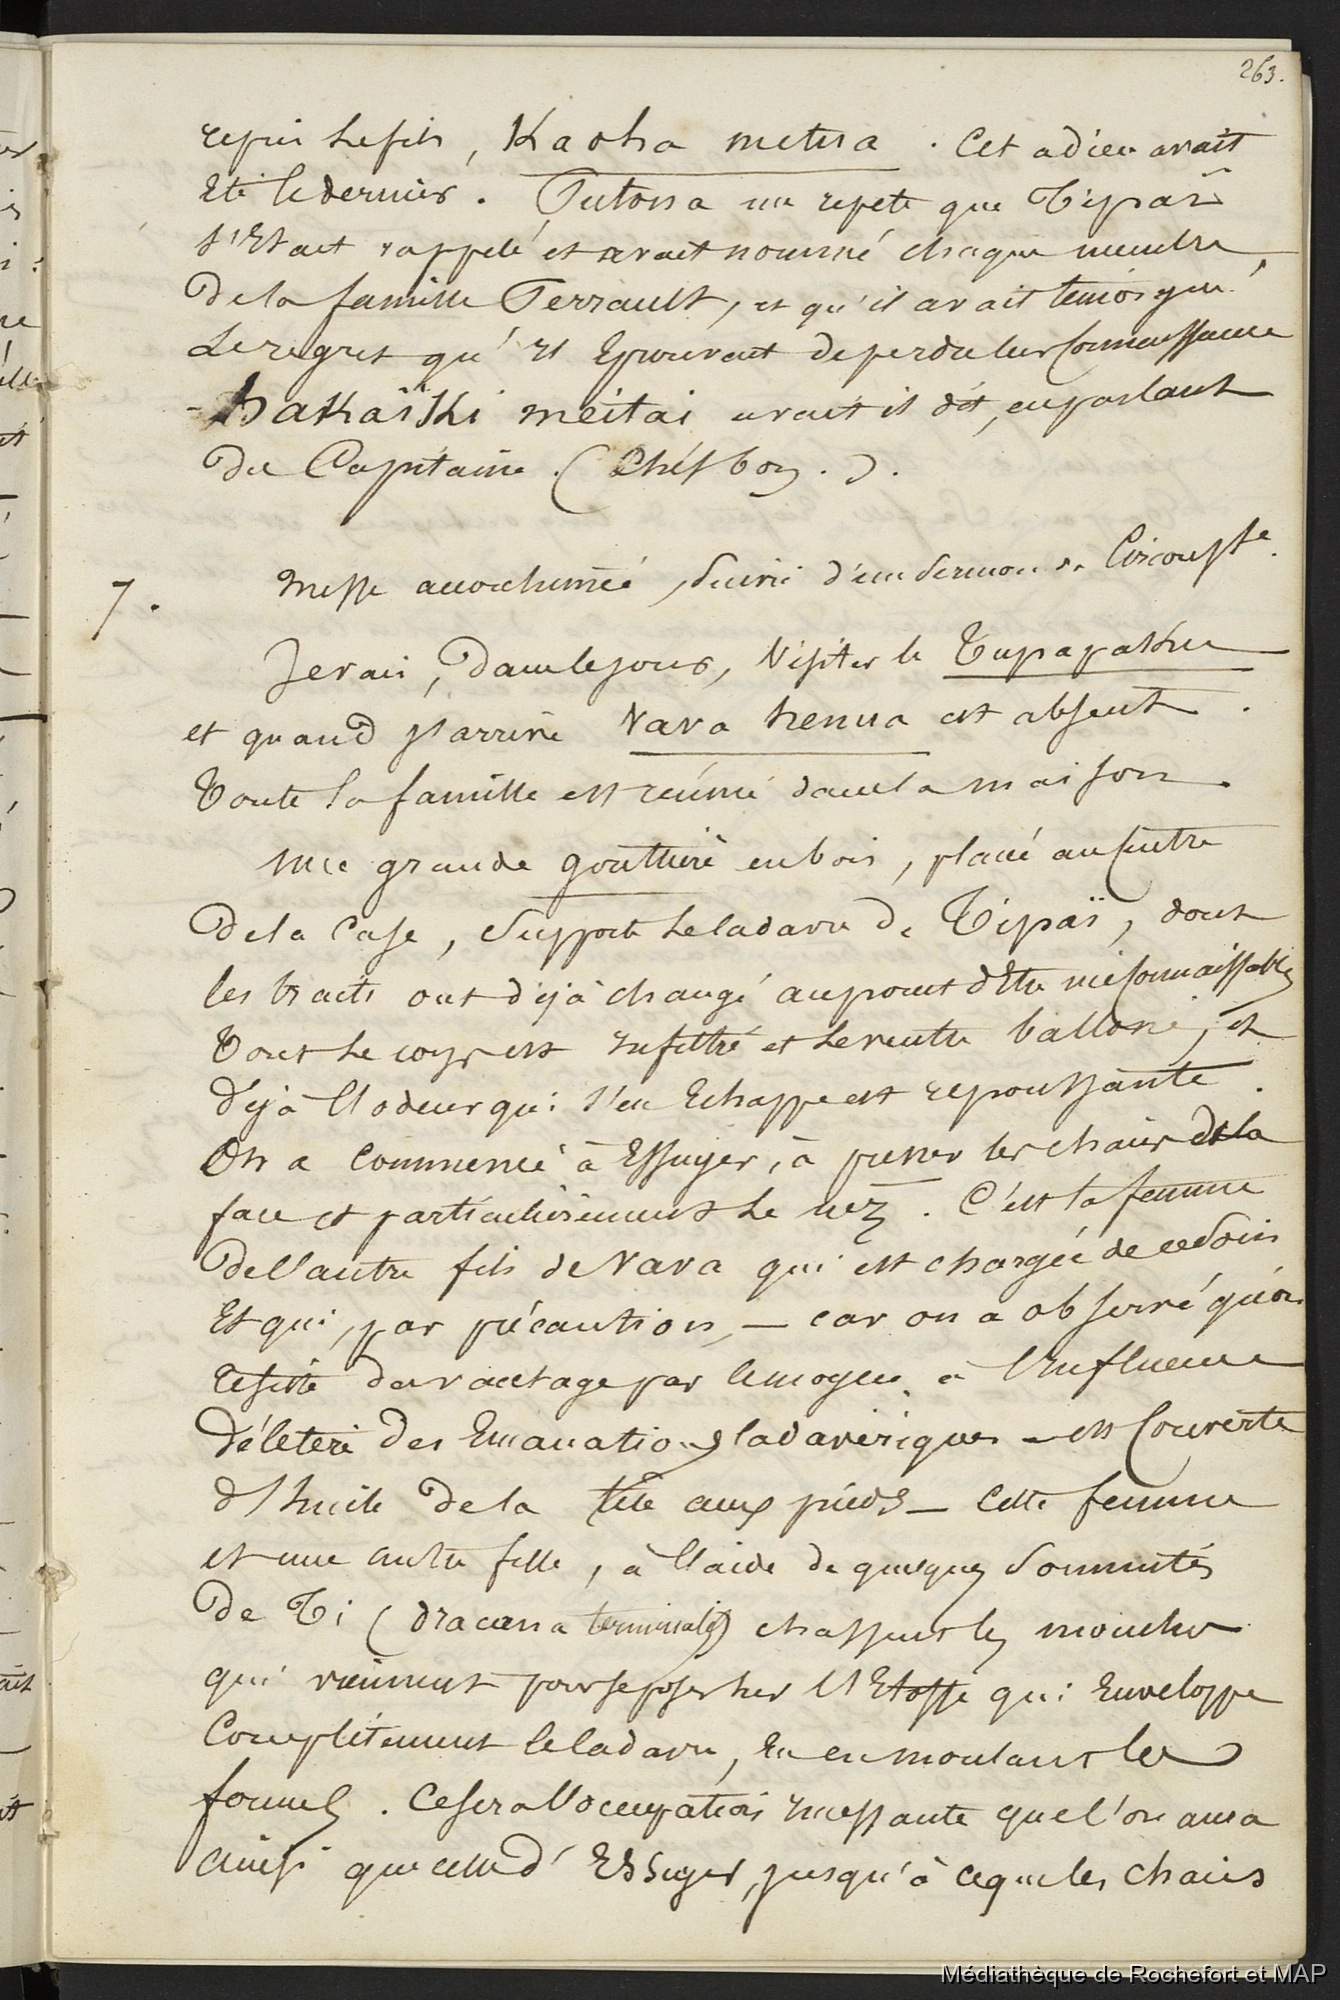 263.
repris le fils, Kaoha metua. Cet adieu avait
Eté le dernier. Tutona me repete que Tipaï
s'Etait rappelé et avait nommé chaque membre
de la famille Perrault, et qu'il avait temoigné
Le regret qu'il Eprouvait de perdre leur Connaissance
- hakaïki meitai avait il dit, en parlant
du Capitaine. (Chéf bon.).
7. Messe accoutumée, Suivie d'un Sermon de Circonste.
Je vais, dans le jour, Visiter le Tupapakou
et quand j'arrive Vava henua est absent.
Toute la famille est réunie dans la maison.
Une grande gouttiere en bois, placée au Centre
de la Case, Supporte le Cadavre de Tipaï, dont
les traits ont déjà changé au point d'Etre méconnaissables
Tout le corps est infiltré et le ventre balloné, et
déjà l'odeur qui s'en Echappe est repoussante.
On a Commencé à Essuyer, à presser les chairs de la
face et particulièrement le nez. C'est la femme
de l'autre fils de Vava qui est chargée de ce Soin
Et qui, par précaution, — car on a observé qu'on
resiste davantage par le moyen à l'Influence
déletere des Emanations Cadavériques — est Couverte
d'huile de la tête aux pieds — Cette femme
et une autre fille, à l'aide de quelques Sommités
de Ti (dracæna terminalis) chassent les mouches
qui viennent pour se poser sur l'Etoffe qui Enveloppe
Complétement le Cadavre, En en moulant les
formes. Ce sera l'occupation incessante que l'on aura
ainsi que celle d'Essuyer, jusqu'à ce que les chairs
Médiathèque de Rochefort et MAP